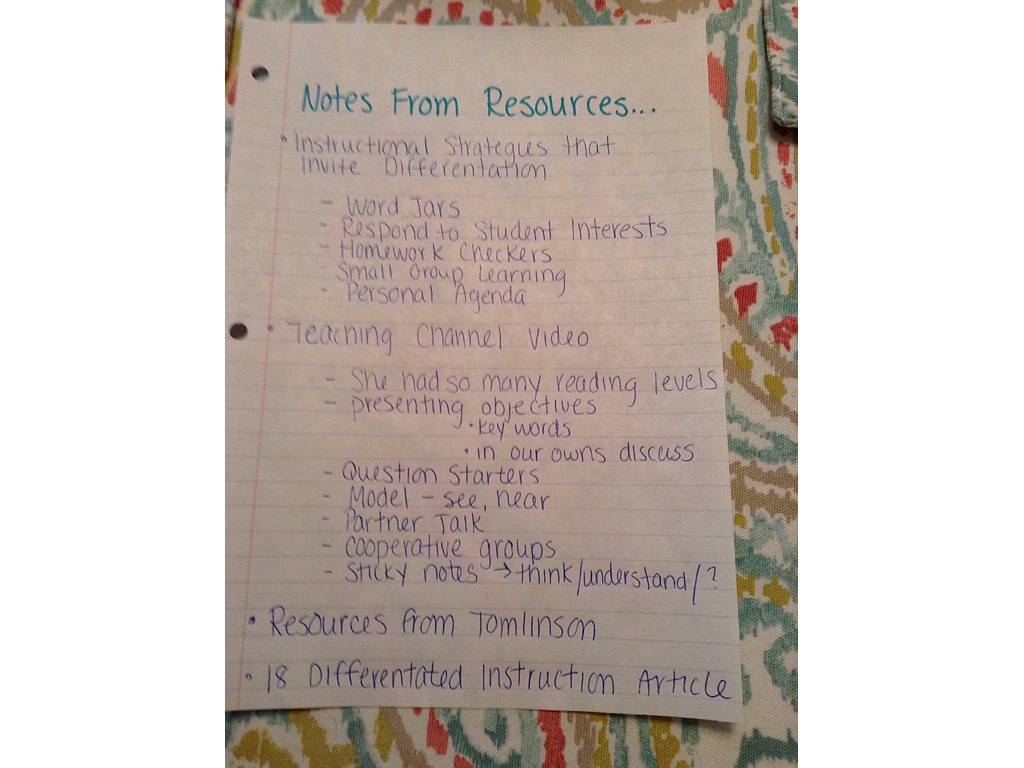 Notes From Resources...
• Instructional Strategies that
Invite Differentation
- Word Jars
- Respond to Student Interests
- Homework Checkers
- Small Group Learning
- Personal Agenda
• Teaching Channel Video
- She had so many reading levels
- presenting objectives
• key words
• in our owns discuss
- Question Starters
- Model - see, hear
- Partner Talk
- cooperative groups
- sticky notes → think/understand/?
• Resources from Tomlinson
• 18 Differentated Instruction Article